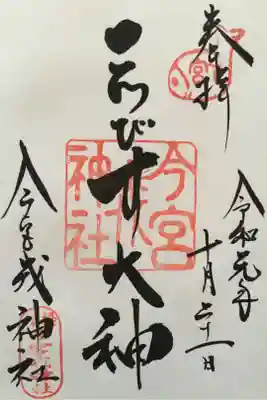 奉拝
令和元年
十月二十一日
ゑびす大神
今宮戎神社
今宮
神社